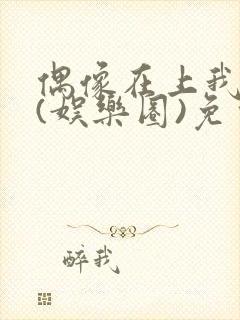 偶像在上我
(娱樂圈)免
醉我